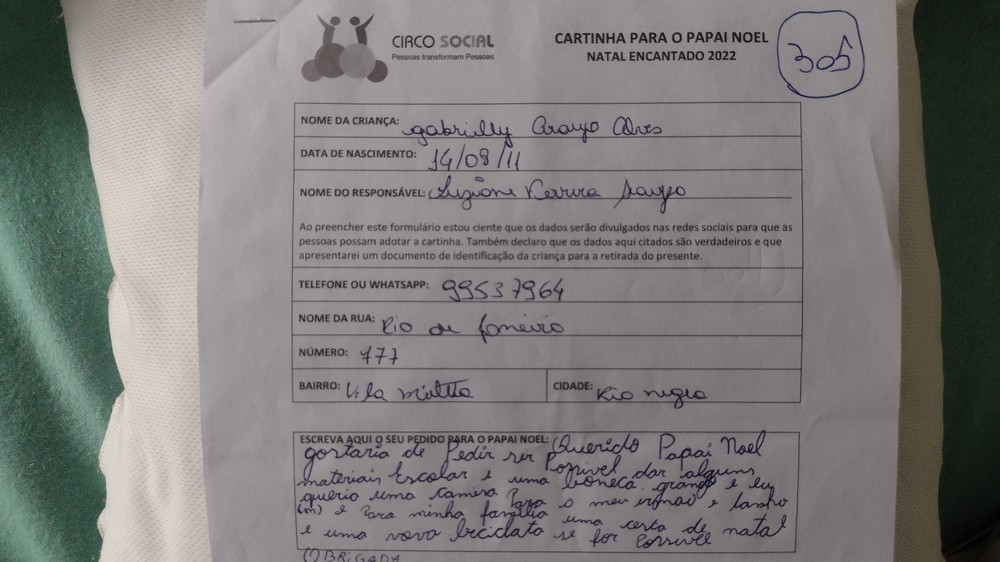 CIRCO SOCIAL
Pessoas transformam Pessoas
CARTINHA PARA O PAPAI NOEL
NATAL ENCANTADO 2022
305
NOME DA CRIANÇA: gabrielly Araujo Alves
DATA DE NASCIMENTO: 14/08/11
NOME DO RESPONSÁVEL: Luziane Ferreira Araujo
Ao preencher este formulário estou ciente que os dados serão divulgados nas redes sociais para que as
pessoas possam adotar a cartinha. Também declaro que os dados aqui citados são verdadeiros e que
apresentarei um documento de identificação da criança para a retirada do presente.
TELEFONE OU WHATSAPP: 99537964
NOME DA RUA: Rio de Janeiro
NÚMERO: 777
BAIRRO: Vila CIDADE: Rio negro
ESCREVA AQUI O SEU PEDIDO PARA O PAPAI NOEL: Querido Papai Noel
gostaria de Pedir ser Possivel dar alguns
materiais Escolar e uma boneca grande e eu
queria uma camisa Para o meu irmão e tanho
(m) e Para minha família uma cesta de natal
e uma nova bicicleta se for Possivel
OBRIGADA